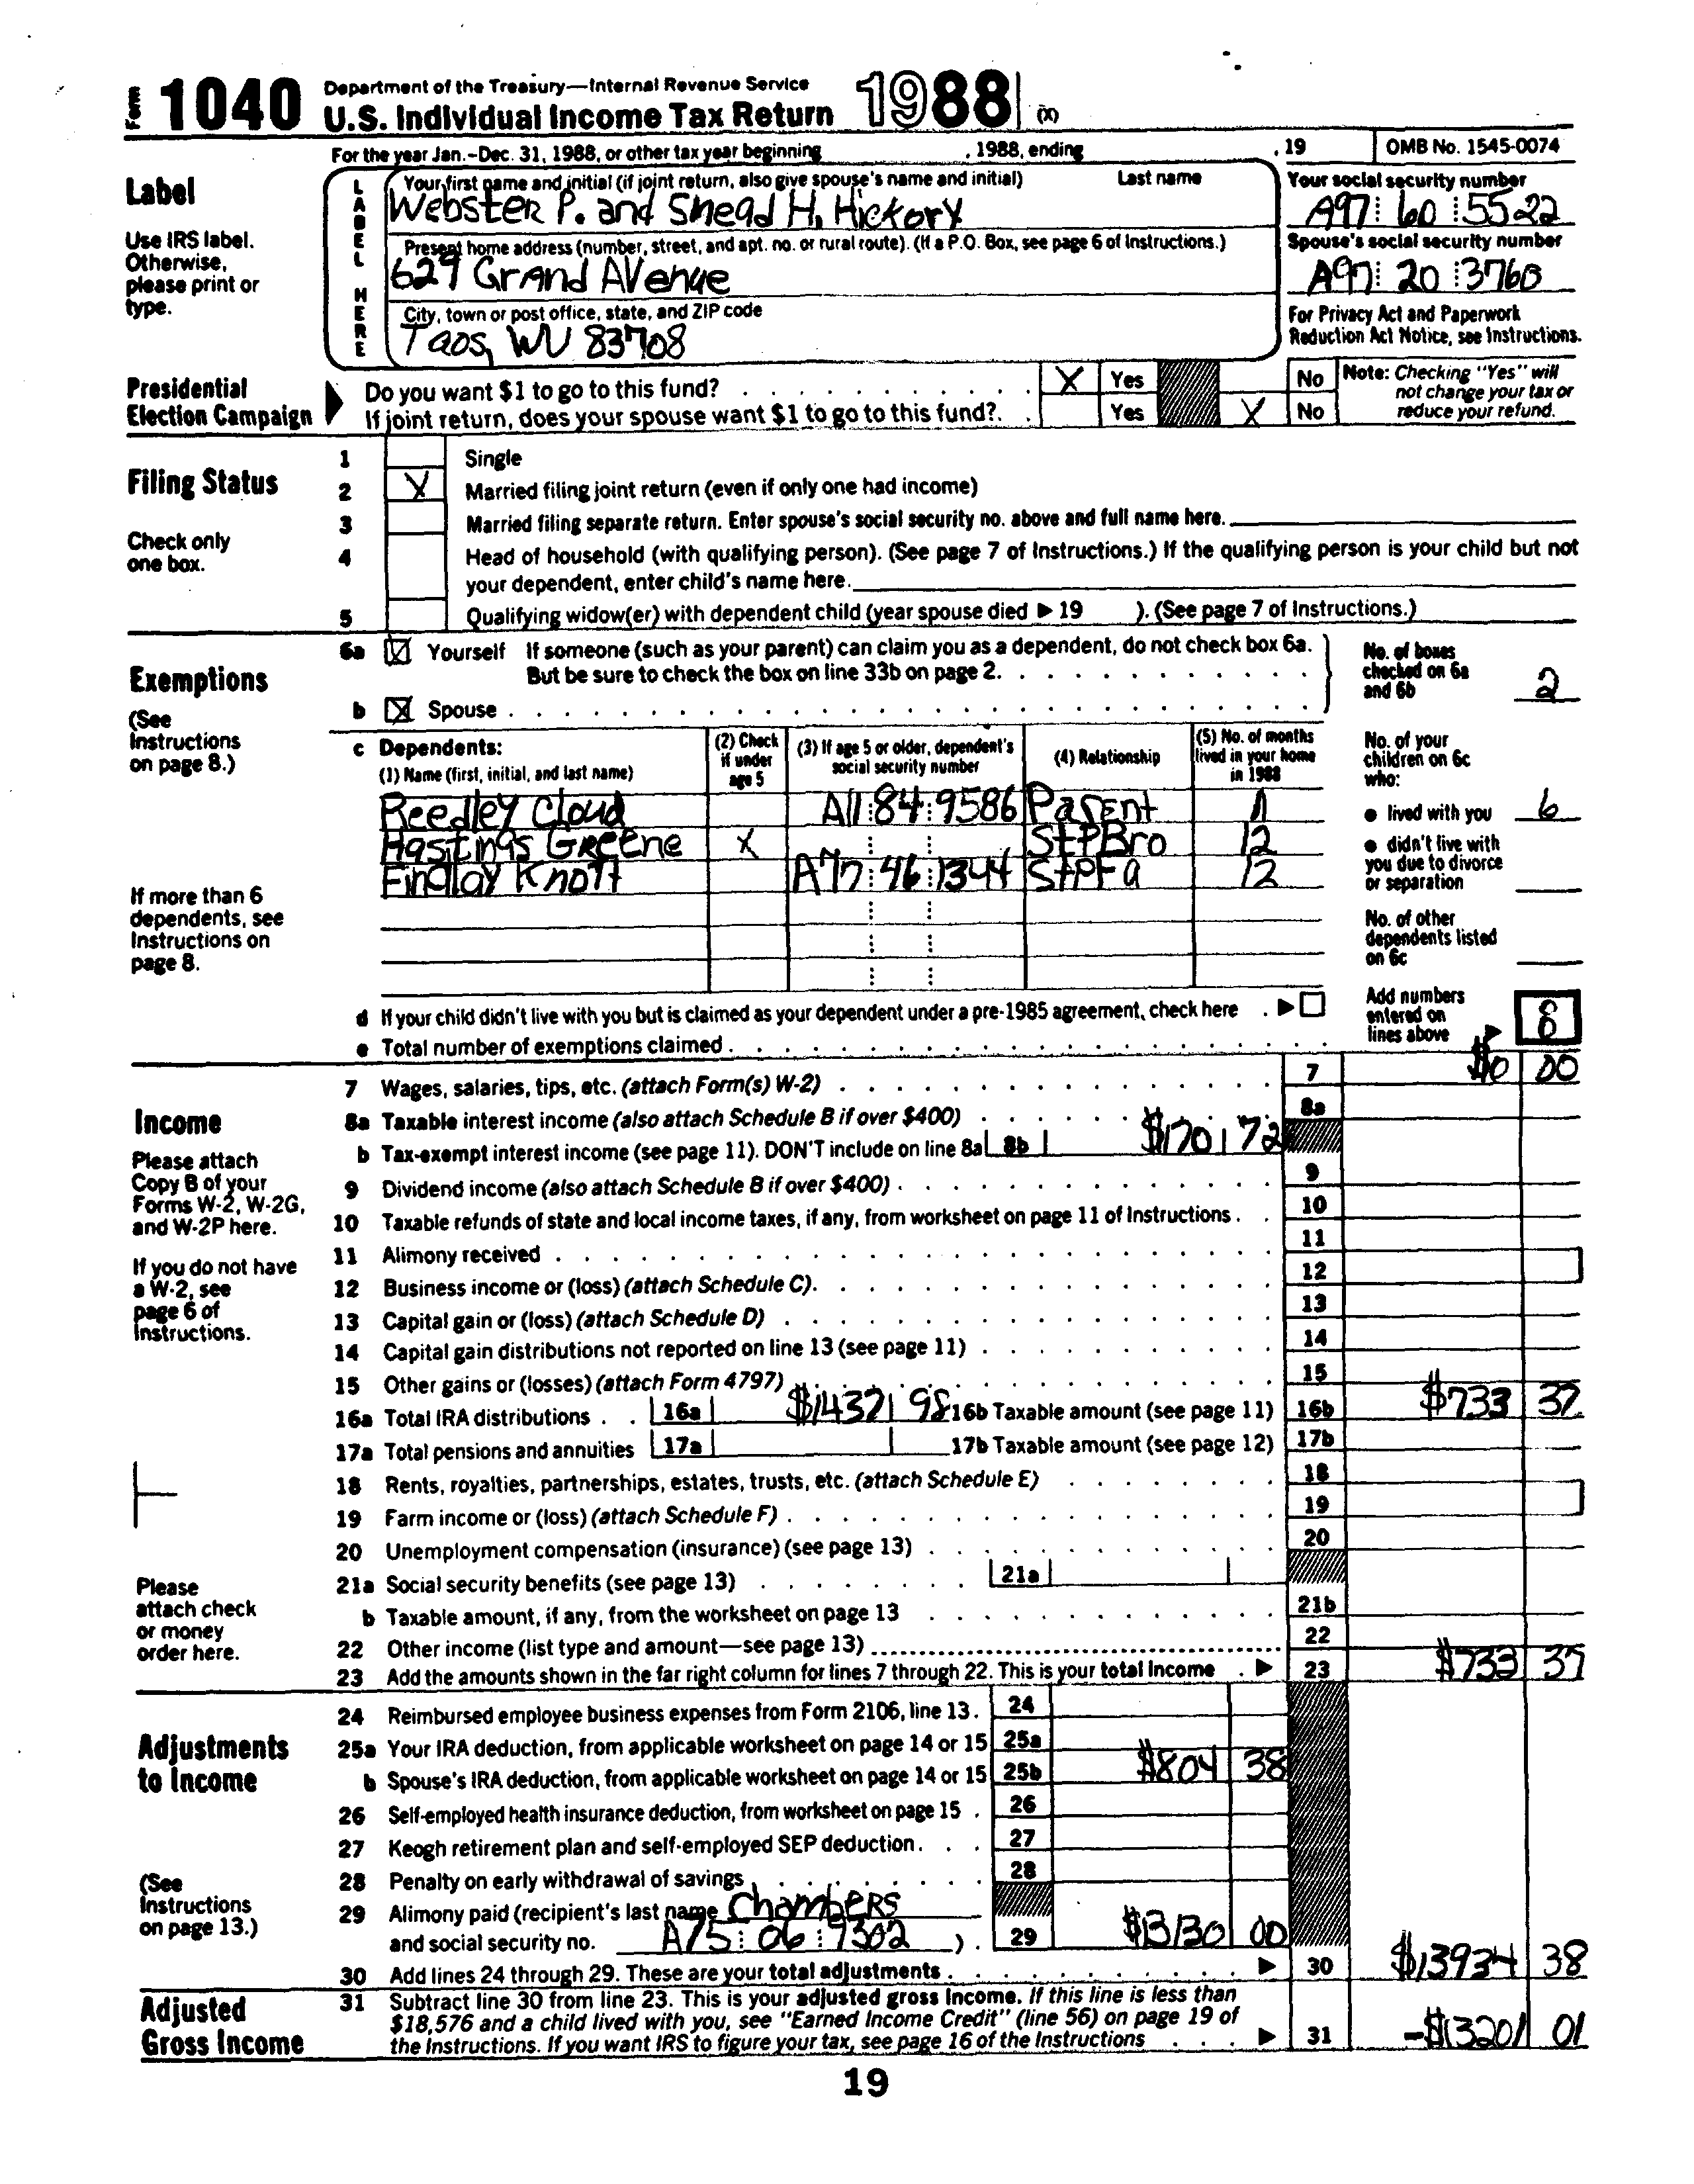 Form 1040 Department of the Treasury—Internal Revenue Service
U.S. Individual Income Tax Return 1988 (X)
For the year Jan.–Dec. 31, 1988, or other tax year beginning , 1988, ending , 19 OMB No. 1545-0074
Label
Use IRS label.
Otherwise,
please print or
type.
LABEL HERE
Your first name and initial (if joint return, also give spouse's name and initial) Last name
Webster P. and Snead H. Hickory
Your social security number
A97 60 5522
Present home address (number, street, and apt. no. or rural route). (If a P.O. Box, see page 6 of Instructions.)
629 Grand Avenue
Spouse's social security number
A97 20 3760
City, town or post office, state, and ZIP code
Taos, WV 83708
For Privacy Act and Paperwork
Reduction Act Notice, see Instructions.
Presidential
Election Campaign
Do you want $1 to go to this fund? X Yes No
If joint return, does your spouse want $1 to go to this fund?. Yes X No
Note: Checking "Yes" will
not change your tax or
reduce your refund.
Filing Status
Check only
one box.
1 Single
2 X Married filing joint return (even if only one had income)
3 Married filing separate return. Enter spouse's social security no. above and full name here.
4 Head of household (with qualifying person). (See page 7 of Instructions.) If the qualifying person is your child but not
your dependent, enter child's name here.
5 Qualifying widow(er) with dependent child (year spouse died ▶ 19 ). (See page 7 of Instructions.)
Exemptions
(See
Instructions
on page 8.)
If more than 6
dependents, see
Instructions on
page 8.
6a X Yourself If someone (such as your parent) can claim you as a dependent, do not check box 6a.
But be sure to check the box on line 33b on page 2.
b X Spouse
No. of boxes
checked on 6a
and 6b 2
c Dependents:
(1) Name (first, initial, and last name)
(2) Check
if under
age 5
(3) If age 5 or older, dependent's
social security number
(4) Relationship
(5) No. of months
lived in your home
in 1988
Reedley Cloud A11 84 9586 Parent 11
Hastings Greene X StPBro 12
Findlay Knott A77 46 1344 StPFa 12
No. of your
children on 6c
who:
● lived with you 6
● didn't live with
you due to divorce
or separation
No. of other
dependents listed
on 6c
d If your child didn't live with you but is claimed as your dependent under a pre-1985 agreement, check here ▶
e Total number of exemptions claimed
Add numbers
entered on
lines above ▶ 8
Income
Please attach
Copy B of your
Forms W-2, W-2G,
and W-2P here.
If you do not have
a W-2, see
page 6 of
Instructions.
Please
attach check
or money
order here.
7 Wages, salaries, tips, etc. (attach Form(s) W-2) 7 $0 00
8a Taxable interest income (also attach Schedule B if over $400) 8a
b Tax-exempt interest income (see page 11). DON'T include on line 8a 8b $170 72
9 Dividend income (also attach Schedule B if over $400) 9
10 Taxable refunds of state and local income taxes, if any, from worksheet on page 11 of Instructions 10
11 Alimony received 11
12 Business income or (loss) (attach Schedule C) 12
13 Capital gain or (loss) (attach Schedule D) 13
14 Capital gain distributions not reported on line 13 (see page 11) 14
15 Other gains or (losses) (attach Form 4797) 15
16a Total IRA distributions 16a $1437 98 16b Taxable amount (see page 11) 16b $733 37
17a Total pensions and annuities 17a 17b Taxable amount (see page 12) 17b
18 Rents, royalties, partnerships, estates, trusts, etc. (attach Schedule E) 18
19 Farm income or (loss) (attach Schedule F) 19
20 Unemployment compensation (insurance) (see page 13) 20
21a Social security benefits (see page 13) 21a
b Taxable amount, if any, from the worksheet on page 13 21b
22 Other income (list type and amount—see page 13) 22
23 Add the amounts shown in the far right column for lines 7 through 22. This is your total income ▶ 23 $733 37
Adjustments
to Income
(See
Instructions
on page 13.)
24 Reimbursed employee business expenses from Form 2106, line 13. 24
25a Your IRA deduction, from applicable worksheet on page 14 or 15 25a
b Spouse's IRA deduction, from applicable worksheet on page 14 or 15 25b $804 38
26 Self-employed health insurance deduction, from worksheet on page 15 26
27 Keogh retirement plan and self-employed SEP deduction 27
28 Penalty on early withdrawal of savings 28
29 Alimony paid (recipient's last name Chambers
and social security no. A75 06 9302 ) 29 $13130 00
30 Add lines 24 through 29. These are your total adjustments ▶ 30 $13934 38
Adjusted
Gross Income
31 Subtract line 30 from line 23. This is your adjusted gross income. If this line is less than
$18,576 and a child lived with you, see "Earned Income Credit" (line 56) on page 19 of
the Instructions. If you want IRS to figure your tax, see page 16 of the Instructions ▶ 31 -$13201 01
19